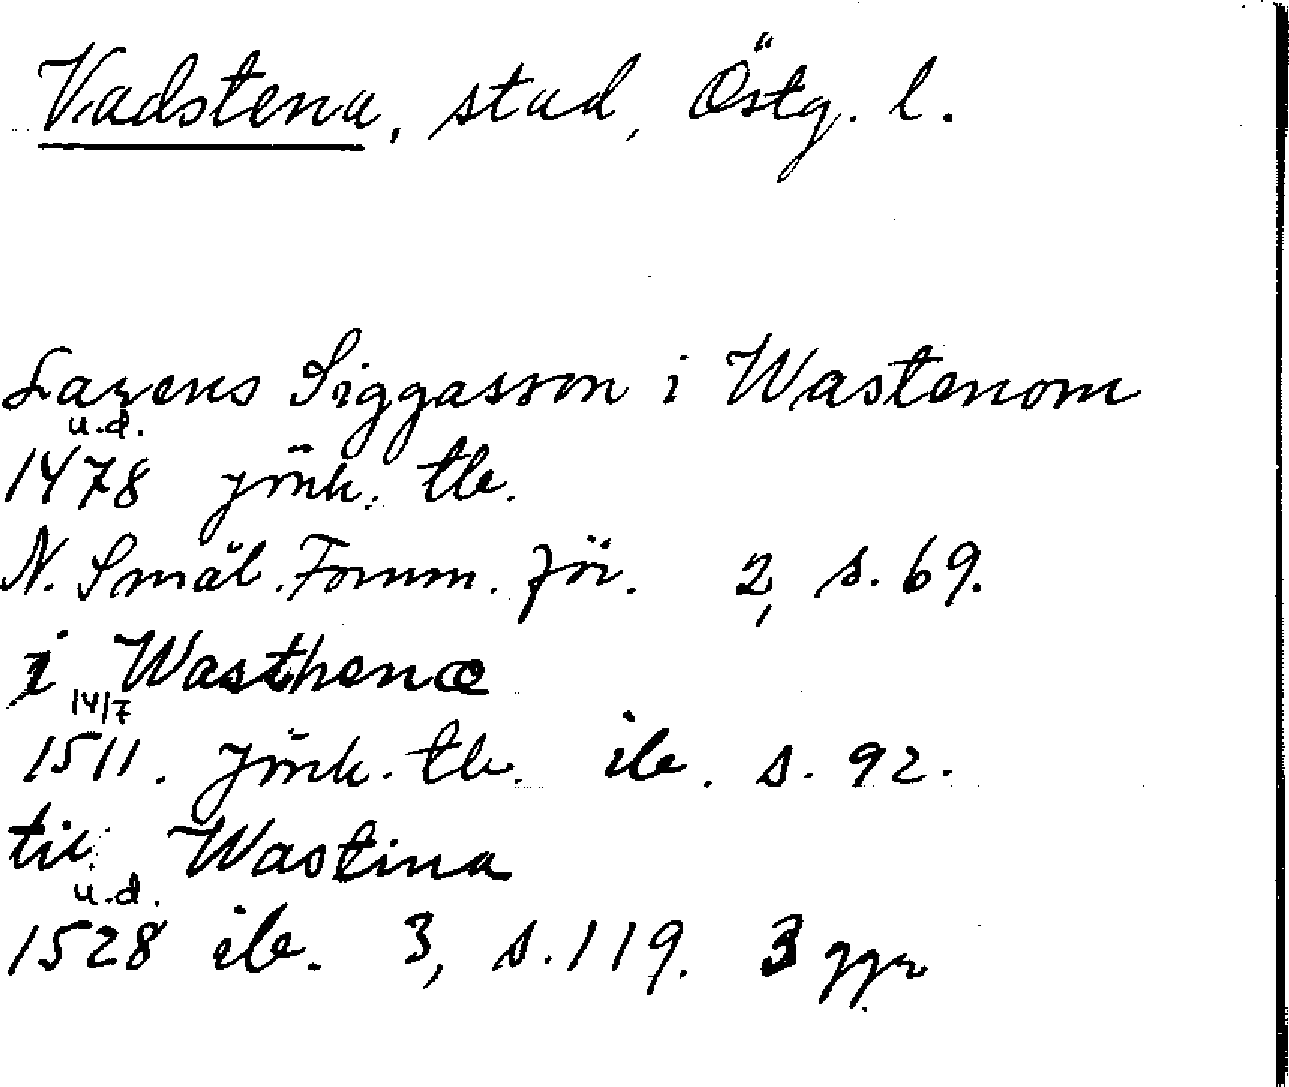 Vadstena, stad, Östg. l.
Larens Siggasson i Wastenom
u.d.
1478 Jönk. tb.
N. Smål. Fornm. för. 2, s. 69.
i Wasthenæ
14/7
1511. Jönk. tb. ib. s. 92.
til Wastina
u.d.
1528 ib. 3, s. 119. 3 ggr